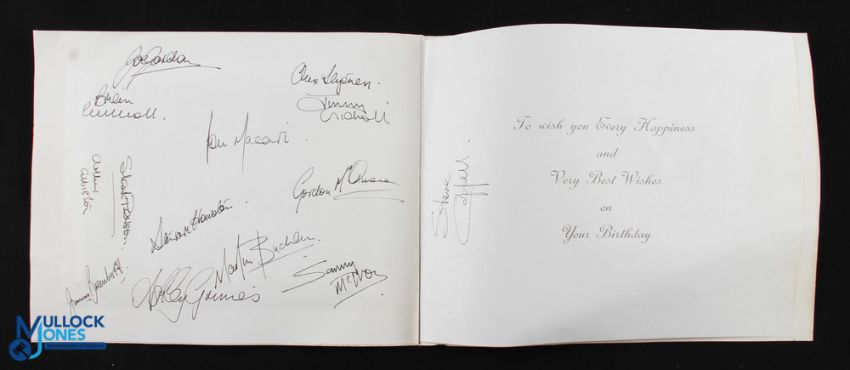 Joe Jordan
Brian
Greenhoff.
Alex Stepney.
Jimmy
Nicholl
Lou Macari.
Arthur
Albiston
Stewart Houston.
Gordon McQueen
Martin Buchan.
Ashley Grimes
Sammy
McIlroy
Steve
Coppell.
To wish you Every Happiness
and
Very Best Wishes
on
Your Birthday
MULLOCK
JONES